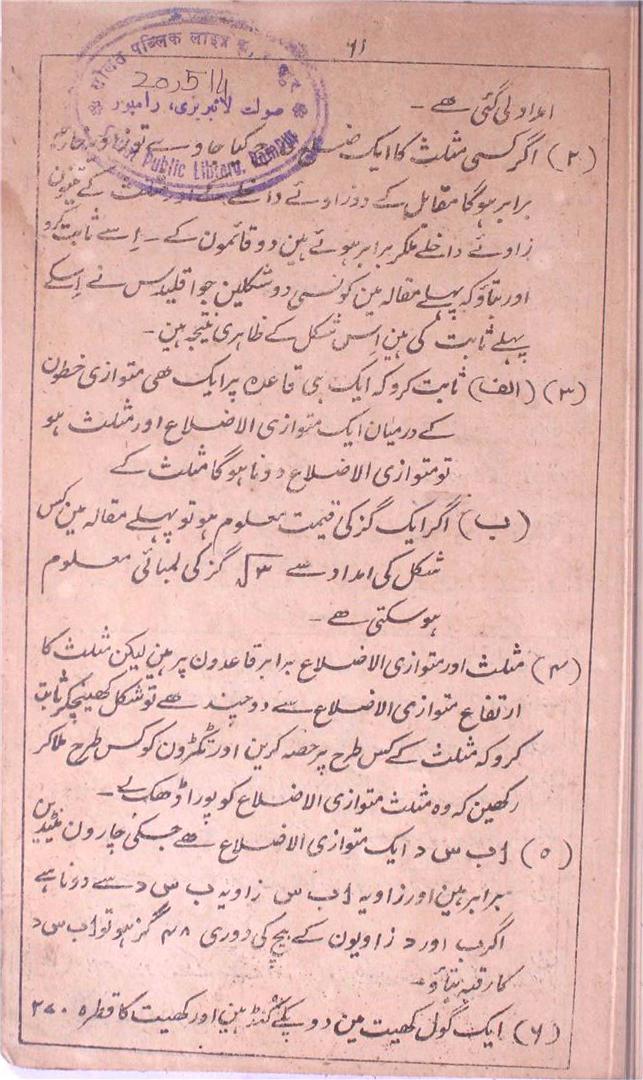 ۶۱
सौलत पब्लिक लाइब्रेरी, रामपुर
20514
صولت لائبریری، رامپور
Public Library, Rampur
امداد لی گئی ھے۔
(۲) اگر کسی مثلث کا ایک کیا جاوے تو زاویہ خارجہ
برابر ہوگا مقابل کے دو زاوئے داخلے کے اور مثلث کے تینون
زاوئے داخلے ملکر برابر ہوئے ہین دو قائمون کے۔ اِسے ثابت کرو
اور بتاؤ کہ پہلے مقالہ مین کونسی دو شکلین جو اقلیدس نے اِسکے
پہلے ثابت کی ہین اِس شکل کے ظاہری نتیجہ ہین۔
(۳) (الف) ثابت کرو کہ ایک ہی قاعدہ پر ایک ھی متوازی خطون
کے درمیان ایک متوازی الاضلاع اور مثلث ہو
تو متوازی الاضلاع دونا ہوگا مثلث کے
(ب) اگر ایک گز کی قیمت معلوم ہو تو پہلے مقالہ مین کس
شکل کی امداد سے √۳ گز کی لمبائی معلوم
ہو سکتی ھے۔
(۴) مثلث اور متوازی الاضلاع برابر قاعدون پر ہین لیکن مثلث کا
ارتفاع متوازی الاضلاع سے دو چند ھے تو شکل کھینچکر ثابت
کرو کہ مثلث کے کس طرح پر حصہ کرین اور ٹکڑون کو کس طرح ملا کر
رکھین کہ وہ مثلث متوازی الاضلاع کو پورا ڈھک لے۔
(۵) ا ب س د ایک متوازی الاضلاع ھے جسکی چارون مینڈین
برابر ہین اور زاویہ ا ب س زاویہ ب س د سے دونا ہے
اگر ب اور د زاویون کے بیچ کی دوری ۴۸ گز ہو تو ا ب س د
کا رقبہ بتاؤ۔
(۶) ایک گول کھیت مین دو پکے کنڈ ہین اور کھیت کا قطرہ ۲۷۰